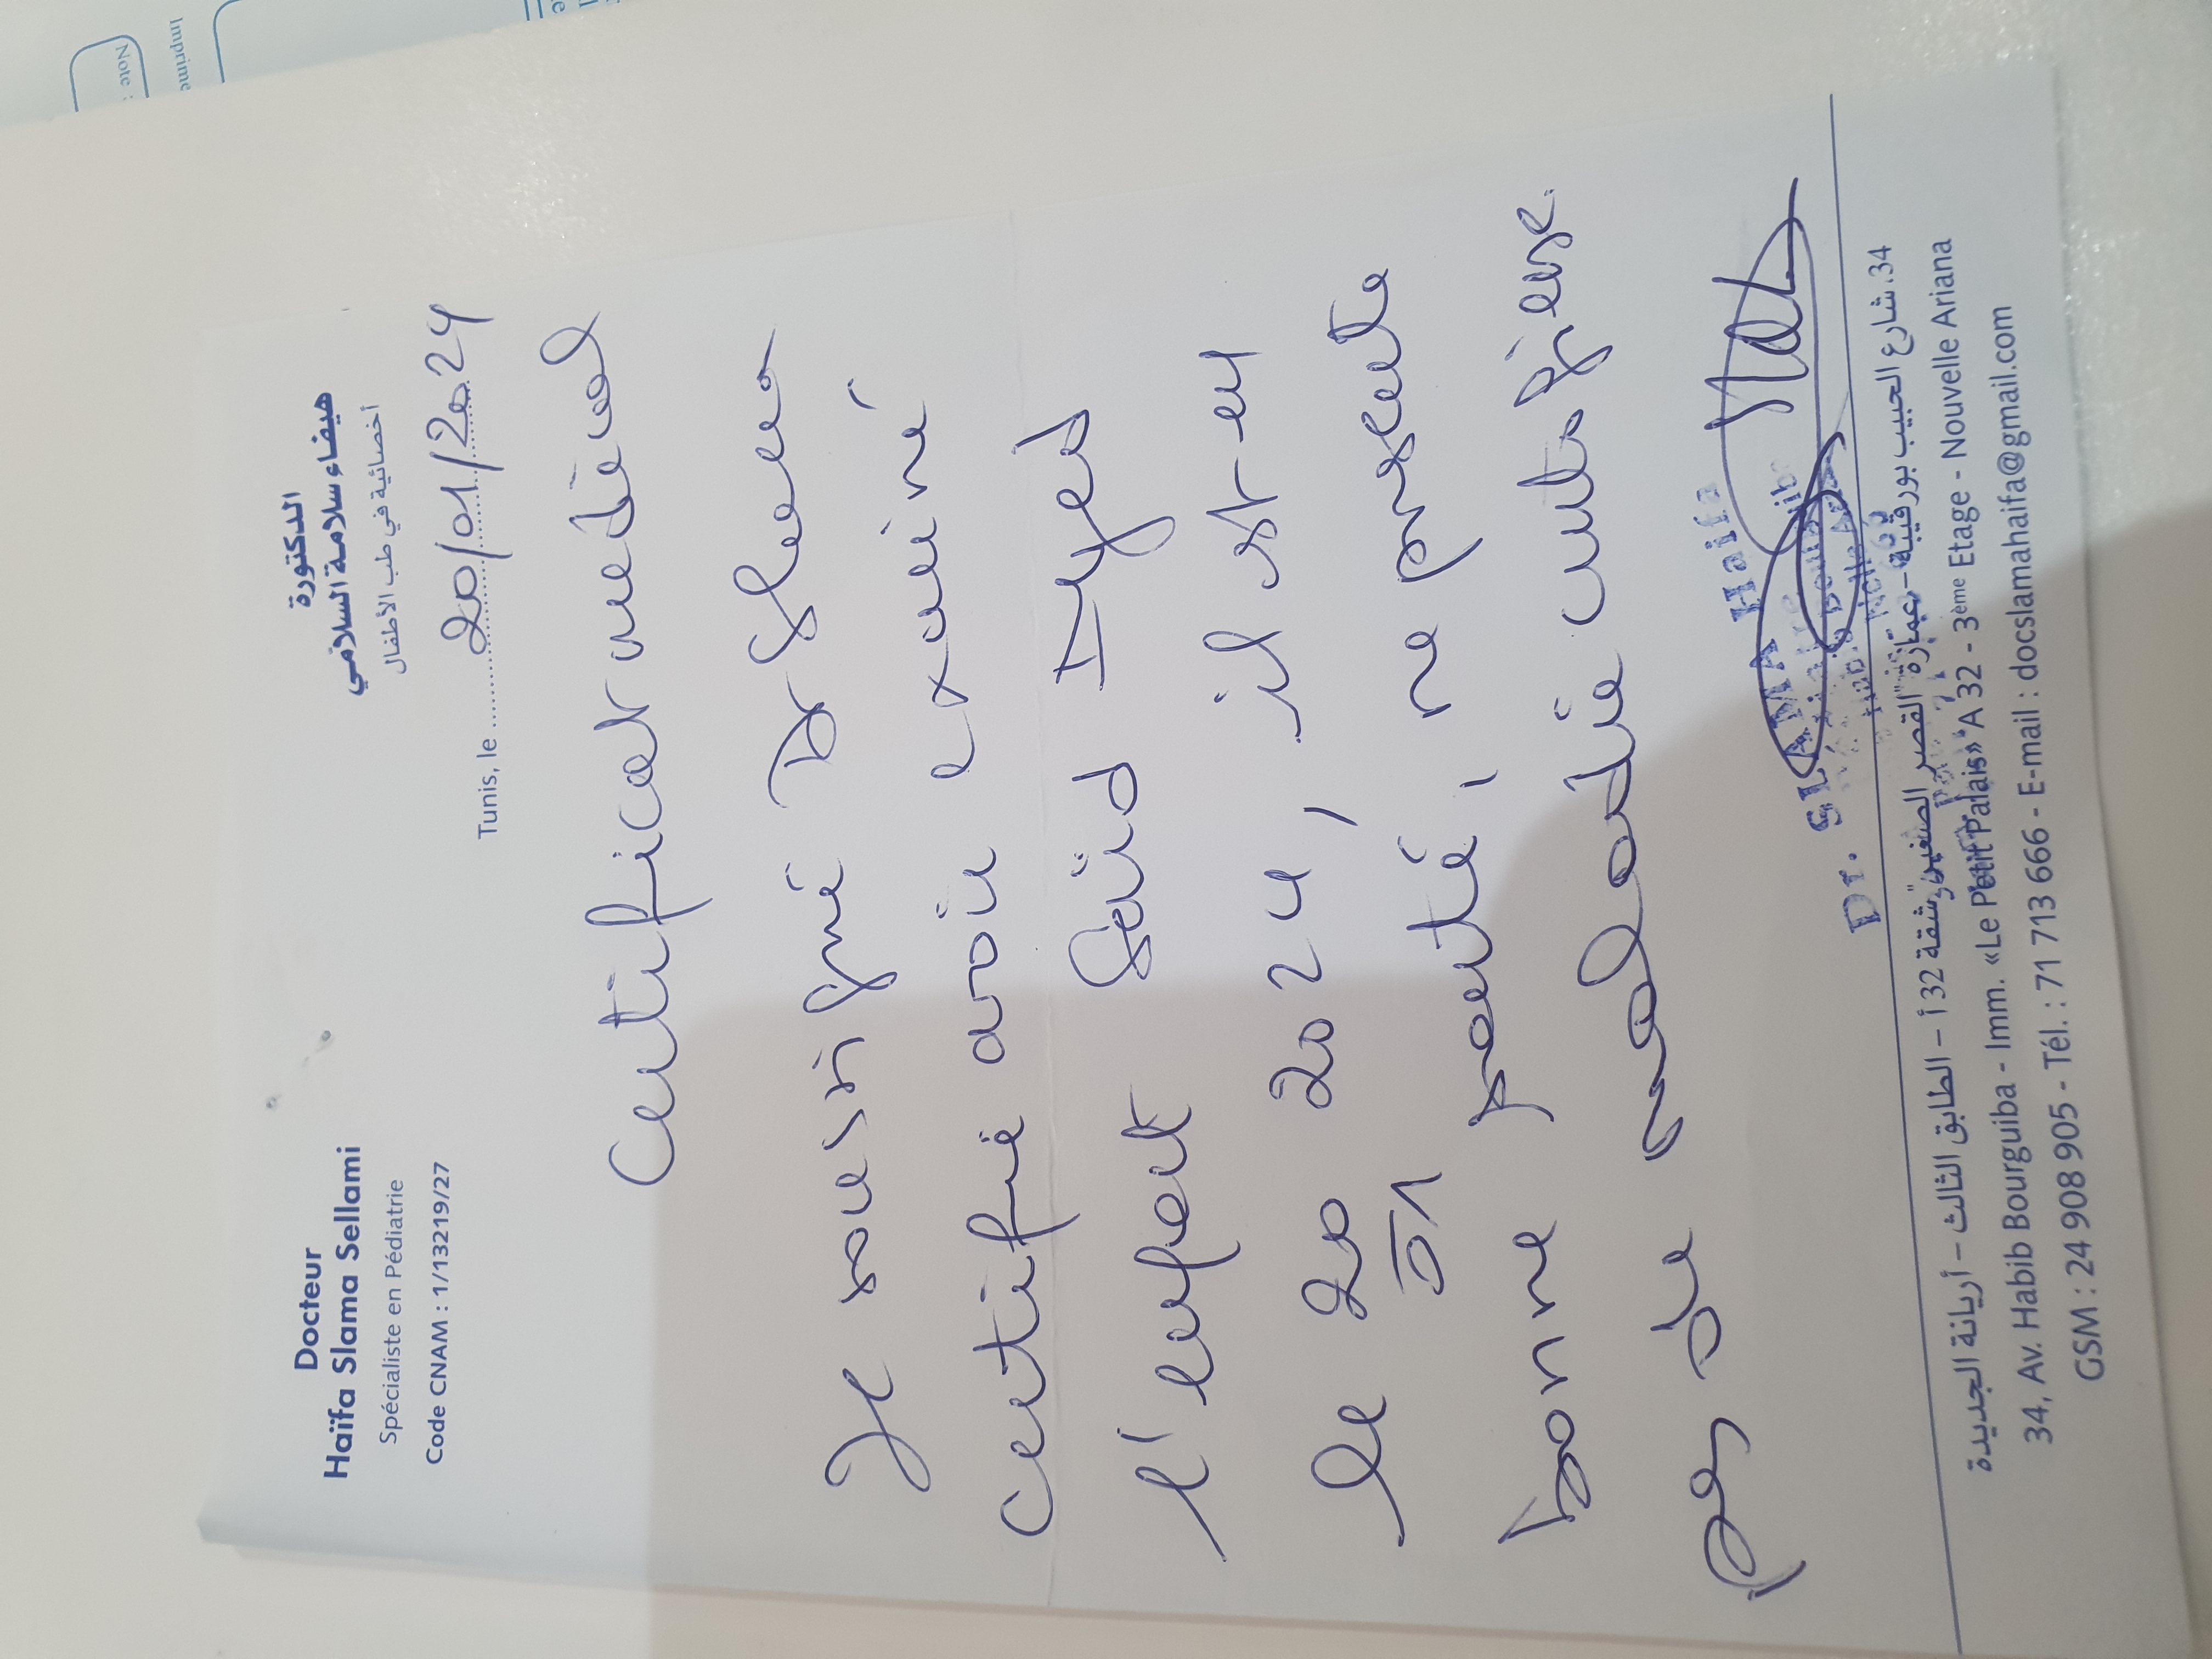 Docteur
Haïfa Slama Sellami
Spécialiste en Pédiatrie
Code CNAM : 1/13219/27
الدكتورة
هيفاء سلامة السلامي
أخصائية في طب الأطفال
Tunis, le 20/01/2024
Certificat medical
Je soussigné Dr Slama
Certifie avoir examiné
l'enfant Saïd Iyed
le 20 01 2024, il est en
bonne santé, ne présente
pas de maladie contagieuse.
Dr. SLAMA Haifa
34، شارع الحبيب بورقيبة - عمارة "القصر الصغير" شقة 32 أ - الطابق الثالث - أريانة الجديدة
34, Av. Habib Bourguiba - Imm. «Le Petit Palais» A 32 - 3ème Etage - Nouvelle Ariana
GSM : 24 908 905 - Tél. : 71 713 666 - E-mail : docslamahaifa@gmail.com
Note :
Imprimé